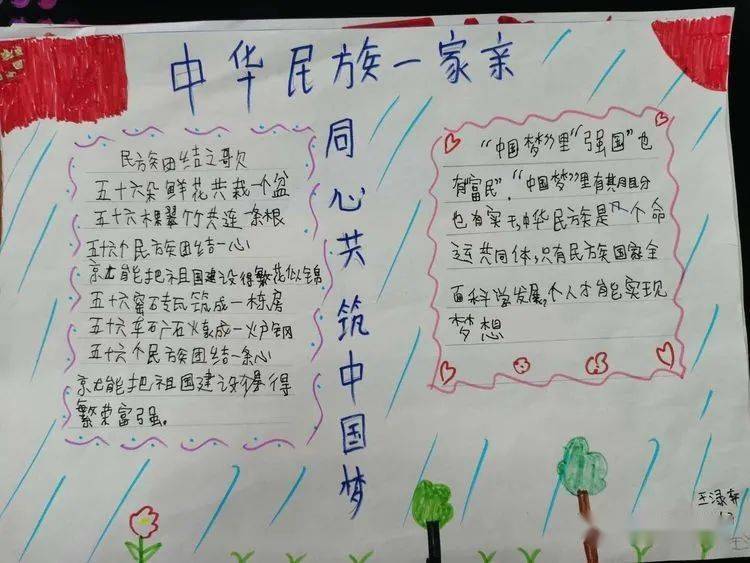 中华民族一家亲
同心共筑中国梦
民族团结之歌
五十六朵鲜花共栽一个盆
五十六棵翠竹共连一条根
五十六个民族团结一心
就能把祖国建设得繁花似锦
五十六窑砖瓦筑成一栋房
五十六车矿石炼成一炉钢
五十六个民族团结一条心
就能把祖国建设得
繁荣富强。
"中国梦"里"强国"也
有"富民"，"中国梦"里有其月目分
也有实干，中华民族是个命
运共同体，只有民族国家全
面科学发展，个人才能实现
梦想
王渌轩